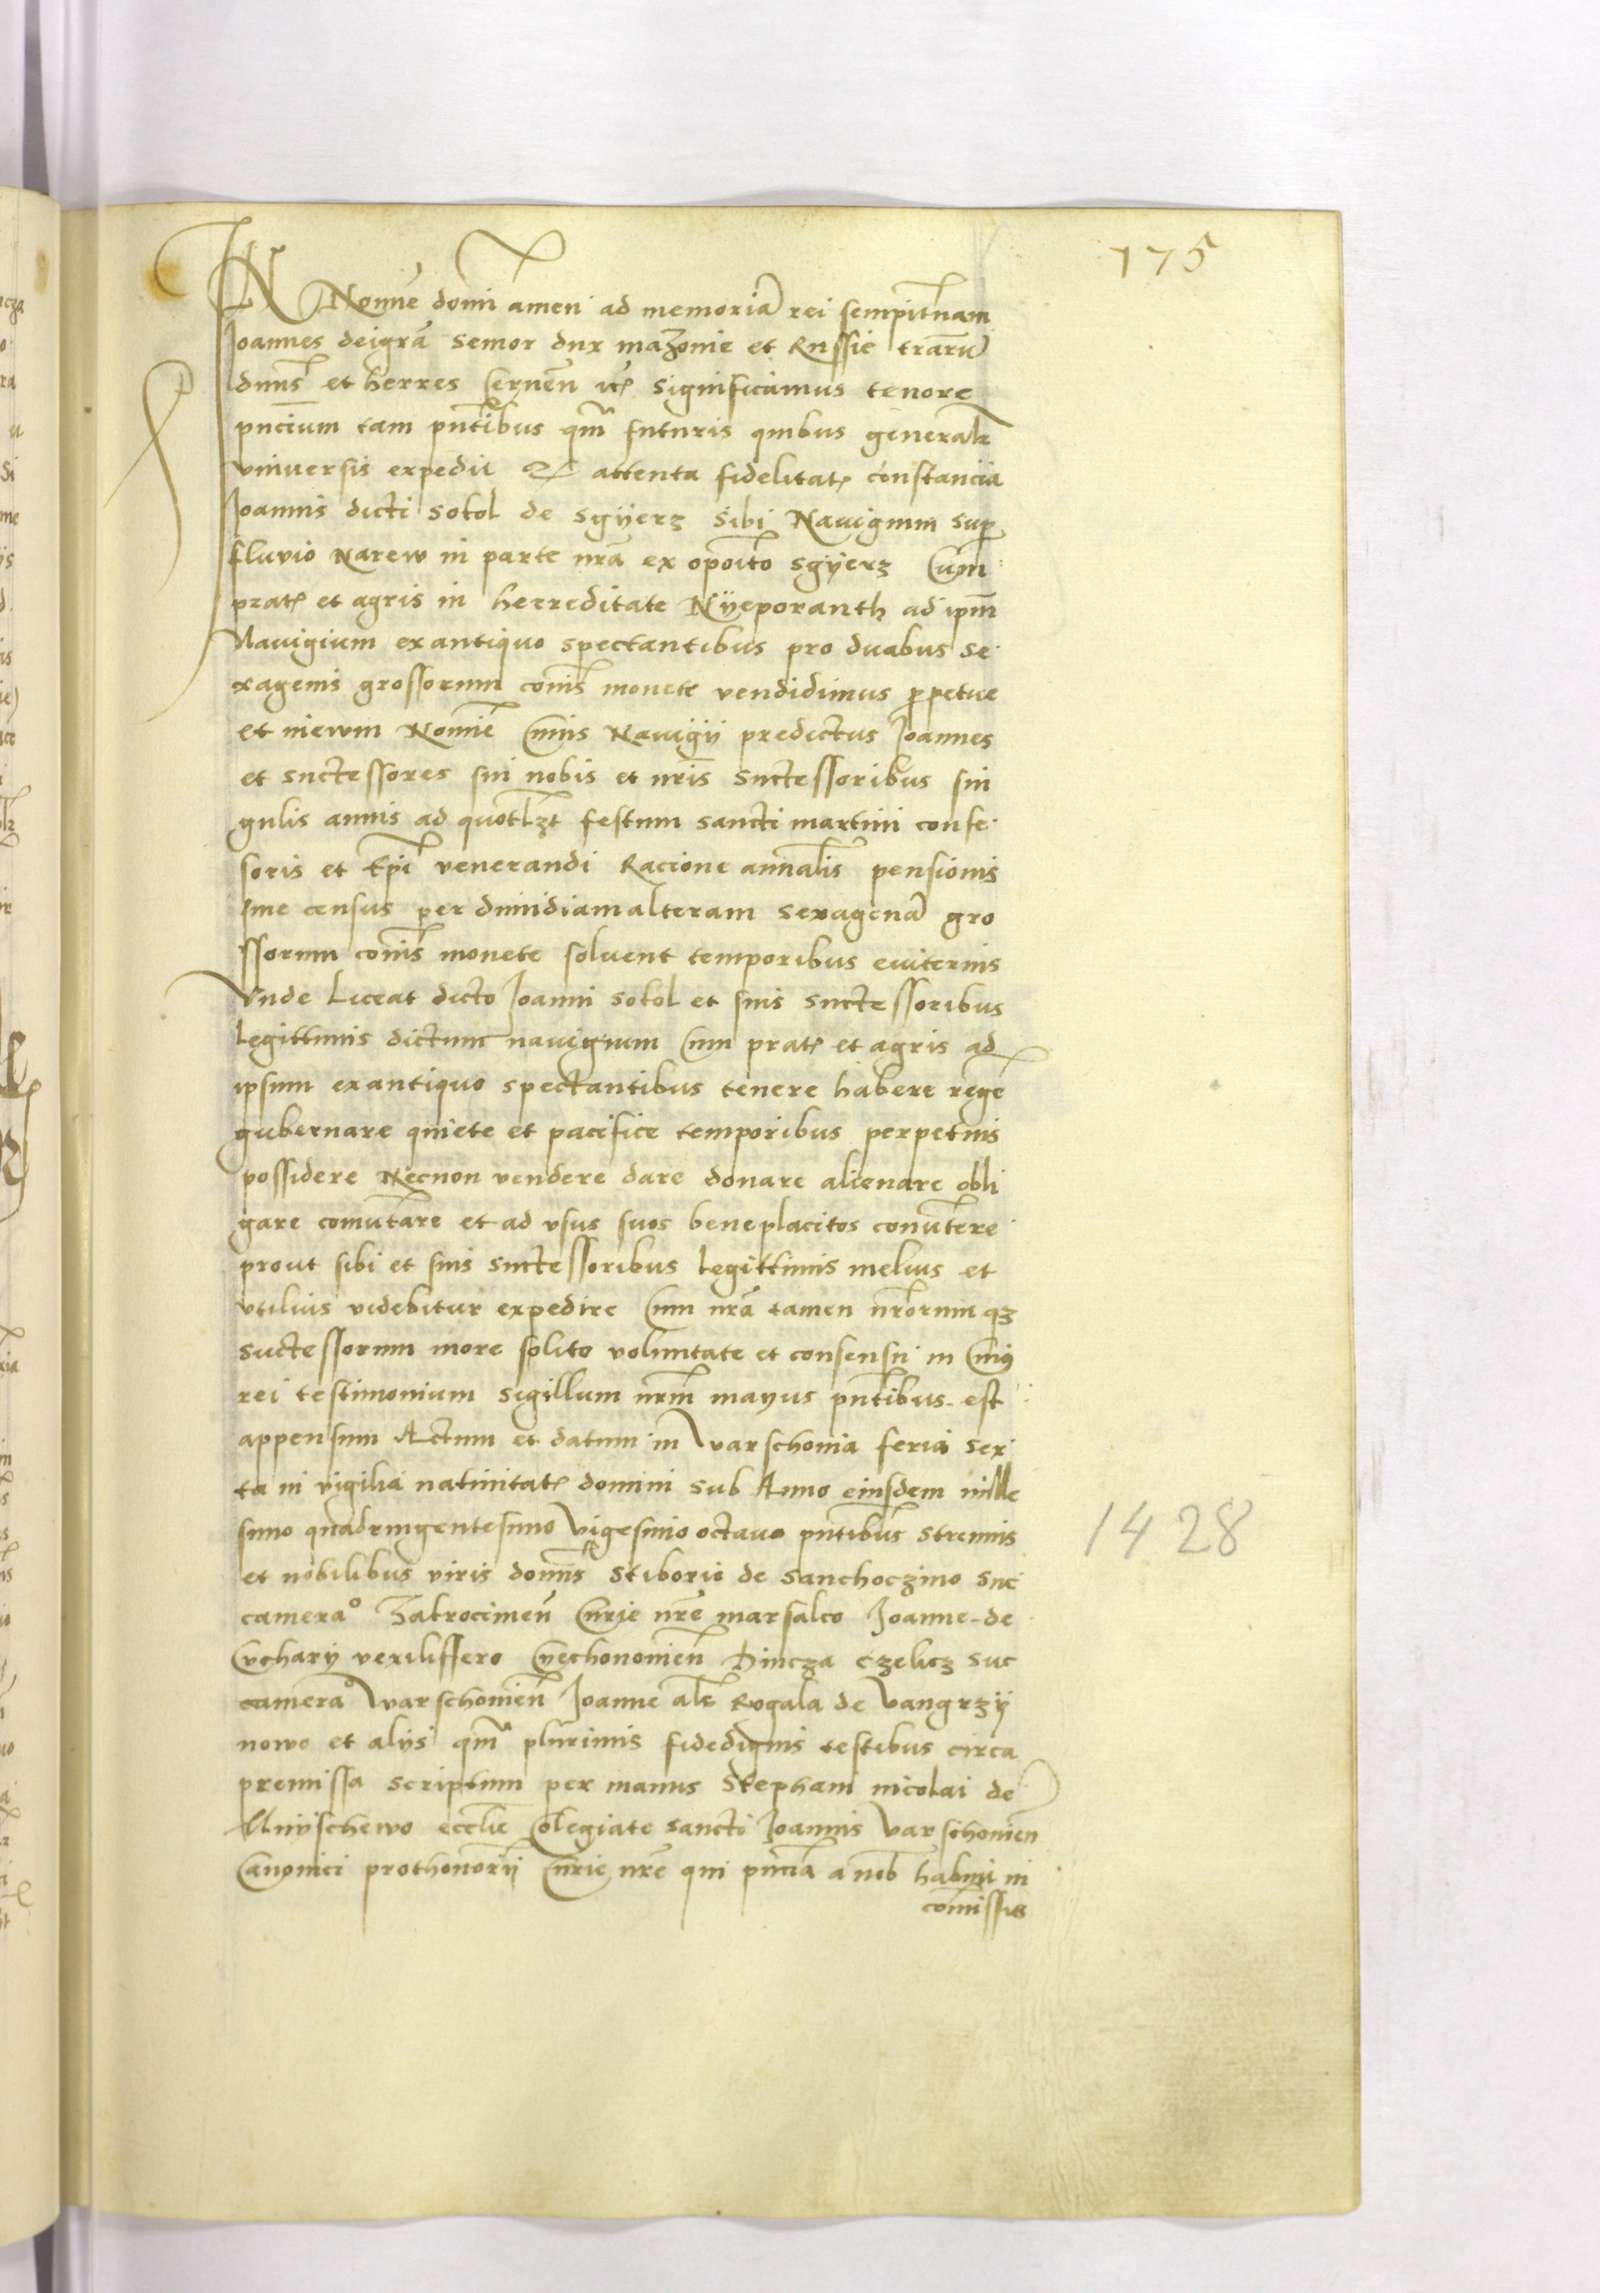 175
IN Nomīe domī amen ad memoriā rei sempiternam
Joannes deigrā senior dux mazouie et Russie trarū
dnus et herres Cernen̄ etc̄ significamus tenore
pn̄cium tam pn̄tibus qm̄ futuris quibus generalr
vniuersis expedit Qͥ attenta fidelitatꝭ constancia
Joannis dicti sokol de sgyerz sibi Nauigium sup
fluvio Narew in parte nrā ex oppoito sgyerz Cum
pratꝭ et agris in herreditate Nyeporanth ad ipm̄
Nauigium exantiquo spectantibus pro duabus se
xagenis grossorum cōnis monete vendidimus ꝑpetue
et in ewm Nomīe Cuius Nauigij predictus Joannes
et suctessores sui nobis et nrīs suctessoribus sin
gulis annis ad quotlꝫt festum sancti martini confe
soris et Epī venerandi Racione annalīs pensionis
siue census per dimidiam alteram sexagenā gro
ssorum cōnis monete soluent temporibus euiternis
Vnde Liceat dicto Joanni sokol et suis suctessoribus
legittimis dictum nauigium Cum pratꝭ et agris ad
ipsum exantiquo spectantibus tenere habere rege
gubernare quiete et pacifice temporibus perpetuis
possidere Necnon vendere dare donare alienare obli
gare comutare et ad vsus suos beneplacitos conutere
prout sibi et suis suctessoribus legittimis melius et
vtilius videbitur expedire Cum nrā tamen nrorumqꝫ
suctessorum more solito voluntate et consensu in Cuiꝰ
rei testimonium sigillum nrm̄ mayus pn̄tibus est
appensum Actum et datum in Varschouia feria sex
ta in vigilia natiuitatꝭ domini sub Anno eiusdem mille
simo quadringentesimo Vigesimo octauo pn̄tibus strenuis
et nobilibus viris domīs Stiborio de sanchoczino suc
cameraº Zakrocimen̄ Curie nrē marsalco Joanne de
Uchary vexilifero Cyechonomien̄ Dincza Czelicz suc
cameraº Warschouien̄ Joanne als̄ Rogala de Vangrzy
nowo et alijs qm̄ plurimis fidedignis testibus circa
premissa scriptum per manus Stephani nicolai de
Mnyschewo ecclīe Colegiate sancti Joannis Varschouien
Canonici prothonorij Curie nrē qui pn̄cia a nob̄ habuit in
comissis
1428